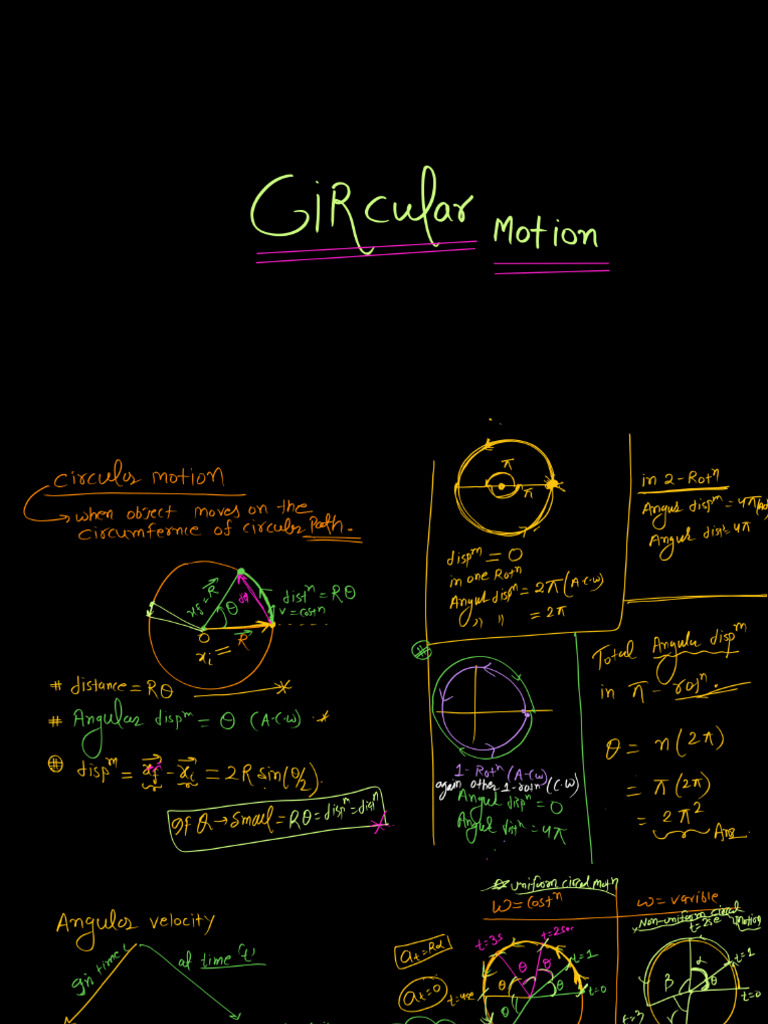 CiRcular Motion
circular motion
when object moves on the
circumfernce of circular Path.
x⃗f = R⃗
θ
distⁿ = Rθ
v = costⁿ
O
R⃗
x⃗i =
# distance = Rθ
# Angular dispᵐ = θ (A.C.W)
dispᵐ = x⃗f - x⃗i = 2R sin(θ/2).
gf θ → small = Rθ = dispᵐ = distⁿ
π
π
dispᵐ = 0
in one Rotⁿ
Angul dispᵐ = 2π (A.C.W)
" " = 2π
in 2-Rotⁿ
Angul dispᵐ = 4π
Angul distⁿ 4π
#
1-Rotⁿ (A-C.W)
again other 1-rotⁿ (C.W)
Angul dispⁿ = 0
Angul distⁿ = 4π
Total Angular dispᵐ
in π - rotⁿ.
θ = n(2π)
= π(2π)
= 2π² Ans.
Angular velocity
gn time t
at time 't'
uniform circul motⁿ
ω = costⁿ
at = Rα
at = 0
t=3s
t=2sec
t=1
t=0
θ θ θ θ
ω = varible
Non-uniform circul Motion
t=2se
t=1
t=0
t=3
α
β
θ